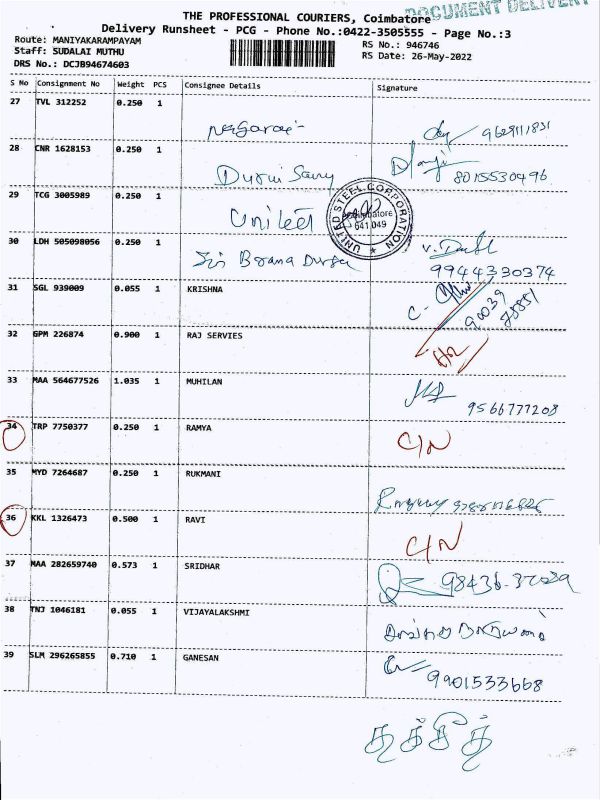 DOCUMENT DELIVERY
THE PROFESSIONAL COURIERS, Coimbatore
Delivery Runsheet - PCG - Phone No.:0422-3505555 - Page No.:3
Route: MANIYAKARAMPAYAM
RS No.: 946746
Staff: SUDALAI MUTHU
RS Date: 26-May-2022
DRS No.: DCJB94674603
S No Consignment No Weight PCS Consignee Details Signature
27 TVL 312252 0.250 1
Nagaraj 9629111831
28 CNR 1628153 0.250 1
Durai Samy 8015530496
29 TCG 3005989 0.250 1
United
UNITED STEEL CORPORATION
Coimbatore
641 049
30 LDH 505098056 0.250 1
Sri Brana Durga
9944330374
31 SGL 939009 0.055 1 KRISHNA
90039
78851
32 GPM 226874 0.900 1 RAJ SERVIES
33 MAA 564677526 1.035 1 MUHILAN
9566777208
34 TRP 7750377 0.250 1 RAMYA
C/N
35 MYD 7264687 0.250 1 RUKMANI
36 KKL 1326473 0.500 1 RAVI
C/N
37 MAA 282659740 0.573 1 SRIDHAR
38 TNJ 1046181 0.055 1 VIJAYALAKSHMI
39 SLM 296265855 0.710 1 GANESAN
9901533668